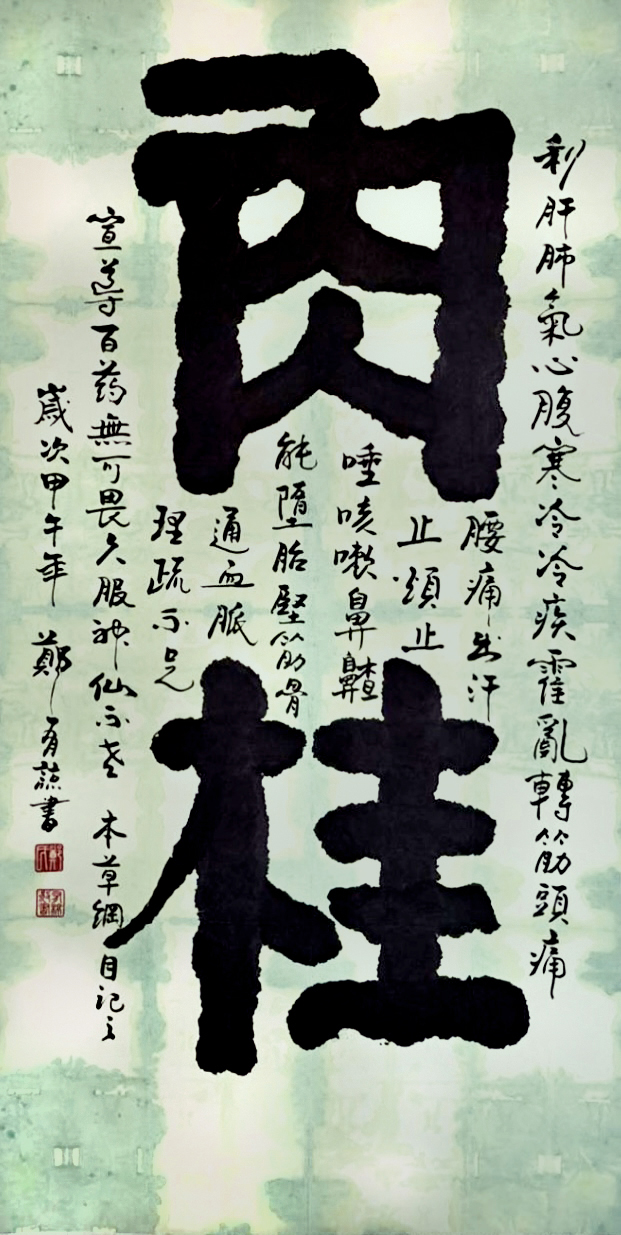 肉桂
利肝肺氣心腹寒冷冷疾霍亂轉筋頭痛
腰痛出汗
止煩止
唾咳嗽鼻齄
能墮胎堅筋骨
通血脈
理疏不足
宣導百药無可畏久服神仙不老 本草綱目記之
歲次甲午年 鄭有書